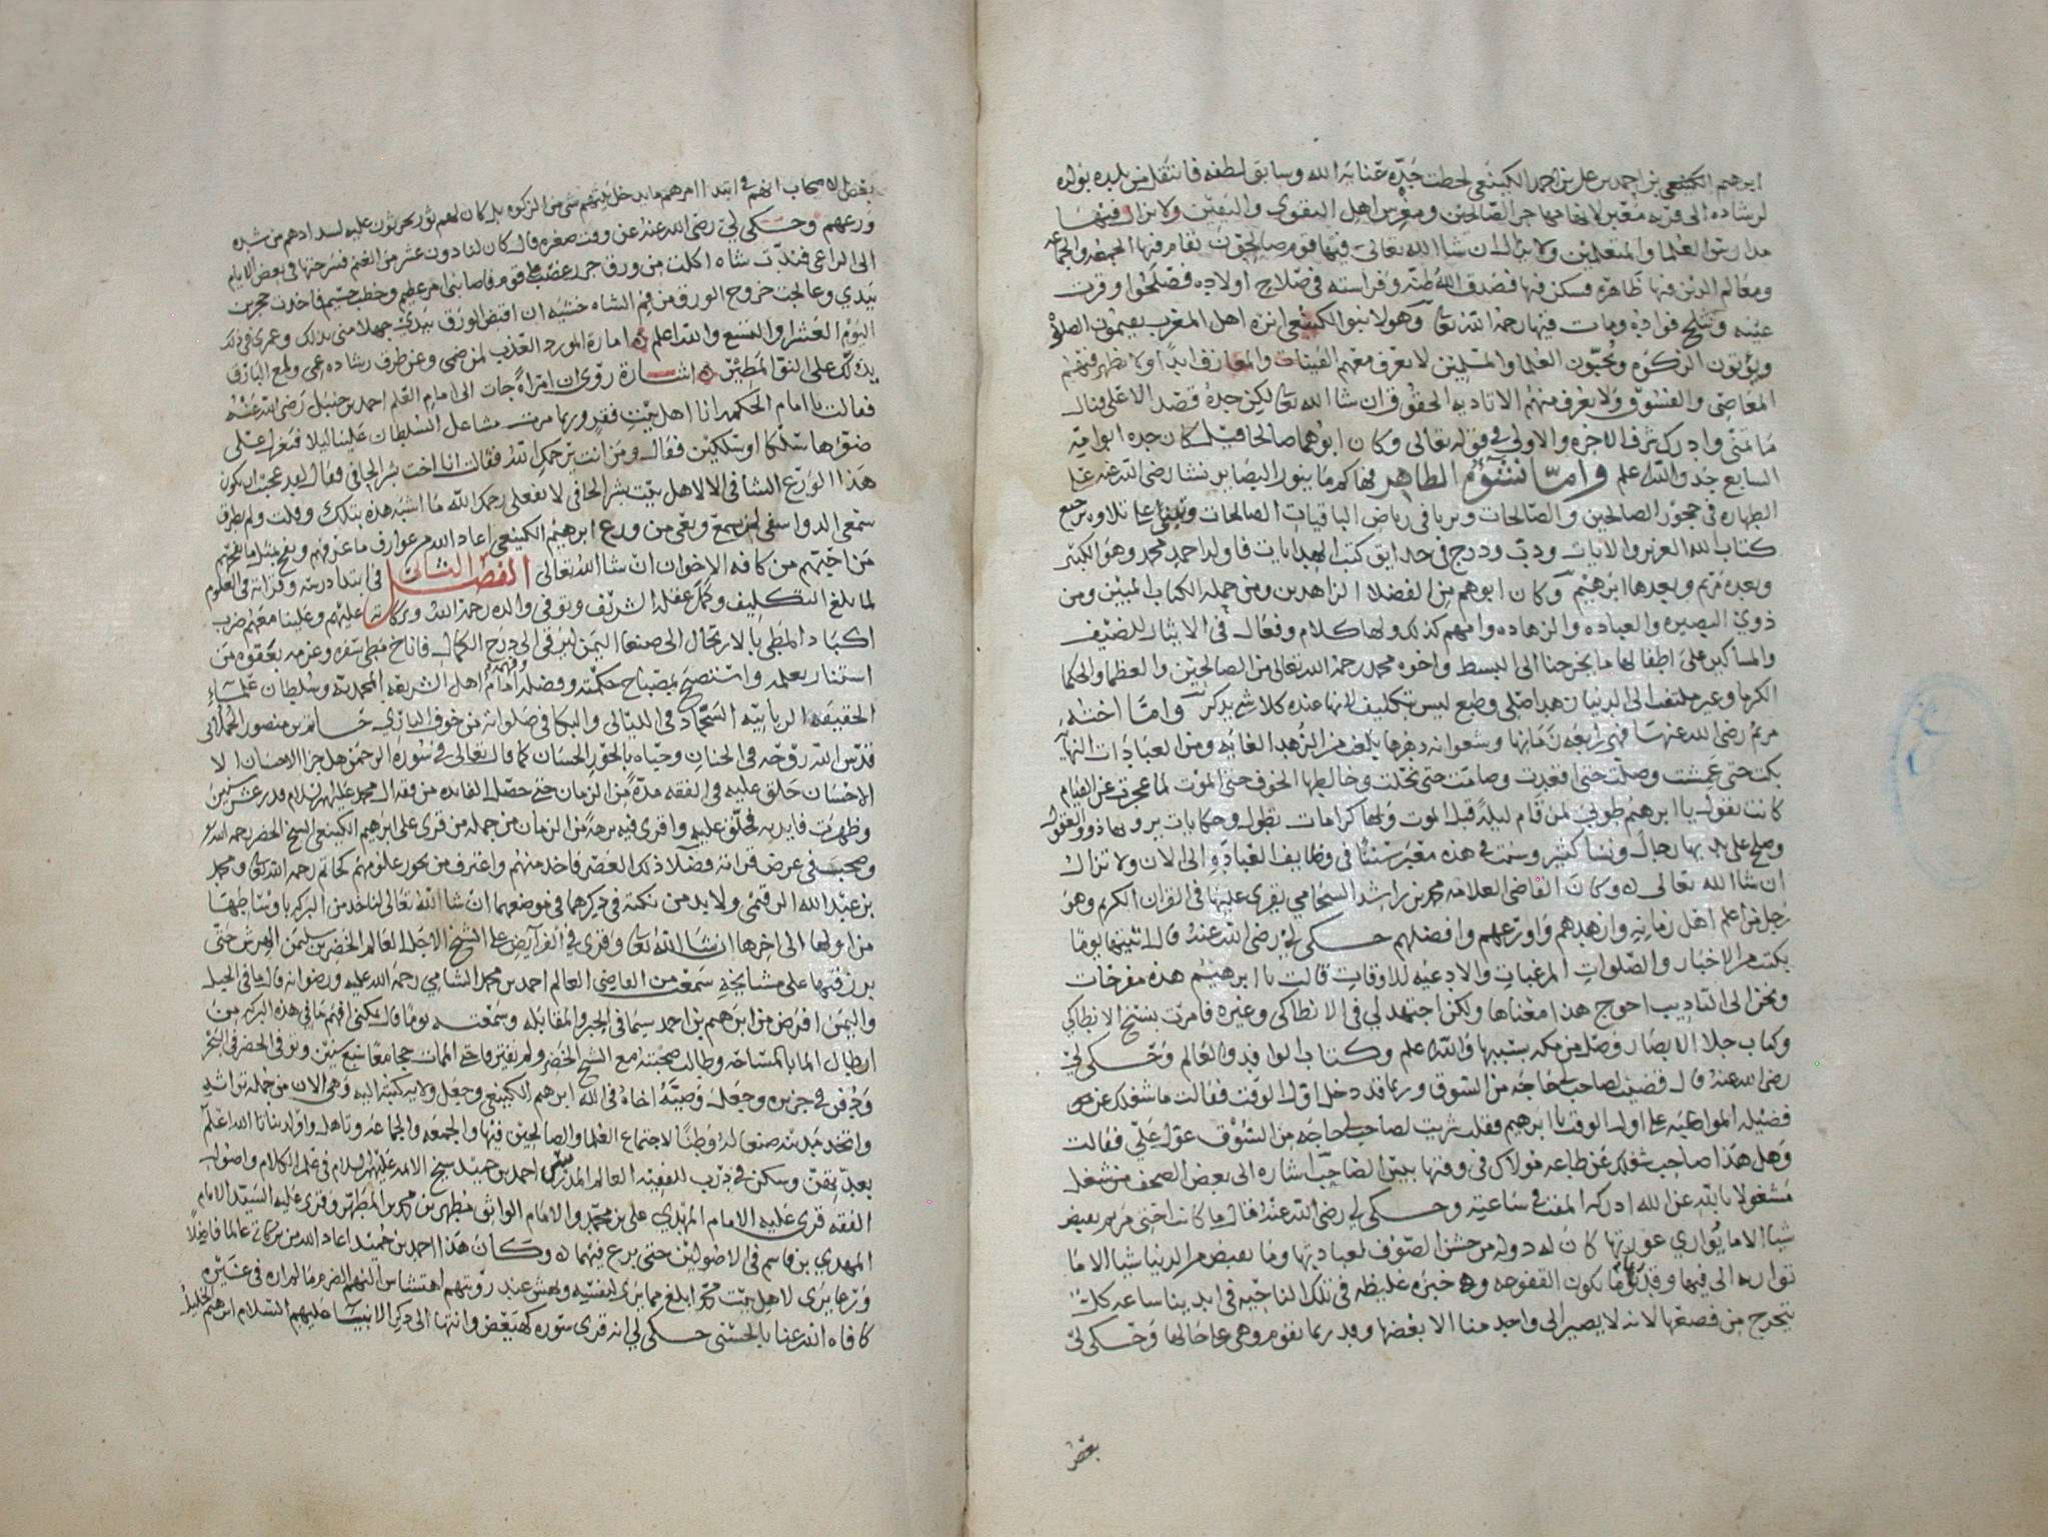 ابرهيم الكينعي بن احمد بن علي بن احمد الكينعي لحظت جده عناية الله وسابق لطفه فانتقل من بلده بولده
لرشاده الى قرية معبر لانها مهاجر الصالحين ومغرس اهل التقوى واليقين ولا يزال فيها
مدارس العلما والمتعلمين ولا يزال ان شا الله تعالى فيها قوم صالحون تقام فيها الجمعه والجماعه
ومعالم الدين فيها ظاهره فسكن فيها فصدق الله ظنه وفراسته في صلاح اولاده فصلحوا وقرت
عينه وثلج فواده ومات فيها رحمه الله تعالى وهولا بنو الكينعي انزه اهل المغرب يقيمون الصلوه
ويؤتون الزكوه ويحبون العلما والمسلمين لا يعرف معهم القينات والمعازف ابدا ولا تظهر فيهم
المعاصي والفسوق ولا يعرف منهم الا تاديه الحقوق ان شا الله تعالى لكن جده قصد الاعلى فنال
ما تمنى وادرك شرف الاخره والاولى في قوله تعالى وكان ابوهما صالحا قيل كان جده ابو اميه
السابع جد والله اعلم واما نشوه الطاهر فهاكم مابنور البصاير نشا رضي الله عنه على
الطهاره في حجور الصالحين والصالحات وربا في رياض الباقيات الصالحات تلاوه جميع
كتاب الله العزيز والايات ودب ودرج في حدايق كتب الهدايات فاولد احمد محمد وهو الكبير
وبعده مريم وبعدها ابرهيم وكان ابوهم من الفضلا الزاهدين ومن حملة الكتاب المبين ومن
ذوي البصيره والعباده والزهاده وامهم كذلك ولها كلام وفعال في الايثار للضيف
والمساكين على اطفالها ما يخرجنا الى البسط واخوه محمد رحمه الله تعالى من الصالحين والعظما والحكما
الكرما وغير ملتفت الى الدنيا زهد اصلي وطبع ليس بتكليف لانها عنده كلا شي يذكر واما اخته
مريم رضي الله عنها فهي رابعة زمانها وشعوانه دهرها بلغت من الزهد الغايه ومن العبادات النهايه
بكت حتى عمشت وصلت حتى اقعدت وصامت حتى نحلت وخالطها الخوف حتى الموت لما عجزت عن القيام
كانت تقول يا ابرهيم طوبى لمن قام ليلة قبل الموت ولها كرامات تطول وحكايات يرويها ذوو العقول
وصلح على يديها رجال ونسا كثير وسنت في هذه معبر سننا في وظايف العباده الى الان ولا تزال
ان شا الله تعالى وكان القاضي العلامه محمد بن راشد السحامي يقرى عليها في القران الكريم وهو
رجل من اعلم اهل زمانه وازهدهم واورعهم وافضلهم حكى لي رضي الله عنه قال اتيتها يوما
بكتب من الاخبار والصلوات المرغبات والادعيه للاوقات قالت يا ابرهيم هذه مفرحات
ونحن الى التاديب احوج هذا معناها ولكن اجتهد لي في الانطاكي وغيره فامرت بنسخ الانطاكي
وكتاب جلا الابصار وصل من مكه بسببها والله اعلم وكتاب الوافد والعالم وحكى لي
رضي الله عنه قال قضيت لصاحب لي حاجه من السوق وربما قد دخل اول الوقت فقالت ما شغلك عن
فضيله المواظبه على اول الوقت يا ابرهيم فقلت شريت لصاحب لي حاجه من السوق عول علي فقالت
وهل هذا صاحب شغلك عن طاعه مولاك في وقتها بيس الصاحب اشاره الى بعض الصحف من شغل
مشغولا بالله عن الله ادركه المقت في ساعته وحكى لي رضي الله عنه قال ما كانت اختي مريم تقبض
شيا الا ما يواري عورتها كان له دوله من خشن الصوف لعبادتها وما تقبض من الدنيا شيا الا ما
تواريه الى فيها وقد يوما نكون القفوحه وهو خبزه غليظه في تلك الناحيه في ايدينا ساعه كل
يتحرج من قصعها لانه لا يصير الى واحد منا الا بعضها وقد ربما نقوم وهي على حالها وحكى لي
بعض
بعض الاصحاب انهم في ابتدا امرهم ما يدخل بيتهم شي من الزكوه بل كان لهم ثور يحرثون عليه لسدادهم من شده
ورعهم وحكى لي رضي الله عنه عن وقت صغره قال كان لنا دون عشر من الغنم فسرحتها في بعض الايام
الى المراعي فندت شاه اكلت من ورق جرر عضب على قوم فاصابني امر عظيم وخطب جسيم فاخذت حجر بن
بيدي وعالجت خروج الورق من فم الشاه خشيه ان اقبض الورق بيدي جهلا مني بذلك وعمري في ذلك
اليوم العشر او التسع والله اعلم اماره المورد العذب لمن ضمى وعن طرف رشاده عمي ولمع البارق
يدلك على النو المطير اشاره روي ان امراة جات الى امام العلم احمد بن حنبل رضي الله عنه
فقالت يا امام الحكمه انا اهل بيت فقر وربما مرت مشاعل السلطان علينا ليلا فنغزل على
ضوها سلكا او سلكين فقال ومن انت يرحمك الله فقالت انا اخت بشر الحافي فقال لقد عجبت ان يكون
هذا الورع الشافي الا لاهل بيت بشر الحافي لا تفعلي رحمك الله ما اشبه هذه بتلك وقلت ولم يطرق
سمعي الدوا سفي لمن سمع ووعى من ورع ابرهيم الكينعي اعاد الله من عوارف ما عرفهم وفتح بمثل ما فتحهم
من احبهم من كافه الاخوان ان شا الله تعالى الفصل الثاني في ابتدا درسه وقراته في العلوم
لما بلغ التكليف وكمل عقله الشريف وتوفي والده رحمة الله وبركاته عليهم وعلينا معهم ضرب
اكباد المطي بالارتحال الى صنعا اليمن ليرقى الى درج الكمال فاناخ مطي سفره وعزمه بعقوه من
استنار بعلمه واستصبح بمصباح حكمته وفضله امام اهل الشريعه المحمديه وسلطان علماء
الحقيقه الربانيه السجاد في الليالي والبكا في صلواته من خوف الباري حاتم بن منصور الحملاني
قدس الله روحه في الجنان وحياه بالحور الحسان كما قال تعالى في سوره الرحمن هل جزا الاحسان الا
الاحسان حلق عليه في الفقه مدة من الزمان حتى حصل الفايده من فقه ال محمد عليهم السلام قدر عشر سنين
وظهرت فايدته فحلق عليه واقرى فيه برهة من الزمان من جمله من قرى على ابرهيم الكينعي الشيخ الخضر رحمه الله
وصحب في عرض قراته فضلا ذلك العصر فاخذ منهم واغترف من بحور علومهم كحاتم رحمه الله تعالى ومحمد
بن عبد الله الرقيمي ولا بد من نكته في ذكرهما في موضعهما ان شا الله تعالى لناخذ من البركه باوساطها
من اولها الى اخرها ان شا الله تعالى وقرى في الفرايض على الشيخ الاجل العالم الخضر بن سليمن الهرش حتى
برز فيها على مشايخه سمعت من القاضي العالم احمد بن محمد الشامي رحمة الله عليه ورضوانه قال ما في الجبل
واليمن افرض من ابرهيم بن احمد سيما في الجبر والمقابله وسمعته يوما قال يمكنني افهم ما في هذه البركه من
ارطال الما بالمساحه وطالت صحبته مع الشيخ الخضر ولم يفترقا حتى الممات حجا معا سبع سنين وتوفي الخضر في البحر
ودفن في جزيره وجعل وصيته اخاه في الله ابرهيم الكينعي وجعل ولايه كتبه اليه وهي الان من جمله تراثه
واتخذ مدينه صنعا له وطنا لاجتماع العلما والصالحين فيها والجمعه والجماعه وتاهل واولد بناتا الله اعلم
بعدتهن وسكن في درب للفقيه العالم المدرس احمد بن حميد شيخ الايمه عليهم السلام في علم الكلام واصول
الفقه قرى عليه الامام المهدي علي بن محمد والامام الواثق مطهر بن محمد بن المطهر وقرى عليه السيد الامام
المهدي بن قاسم في الاصولين حتى برع فيهما وكان هذا احمد بن حميد اعاد الله من بركاته عالما فاضلا
ورعا يرى لاهل بيت محمد ابلغ مما يرى لنفسه ويهش عند رويتهم اهتشاش اليهم الضرم ما لم اره في غيره
كافاه الله عنا بالحسنى حكى لي انه قرى سوره كهيعص وانتهى الى ذكر الانبيا عليهم السلام ابرهيم الخليل